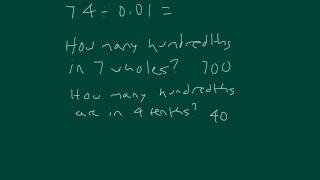 7.4 ÷ 0.01 =
How many hundredths
in 7 wholes? 700
How many hundredths
are in 4 tenths? 40